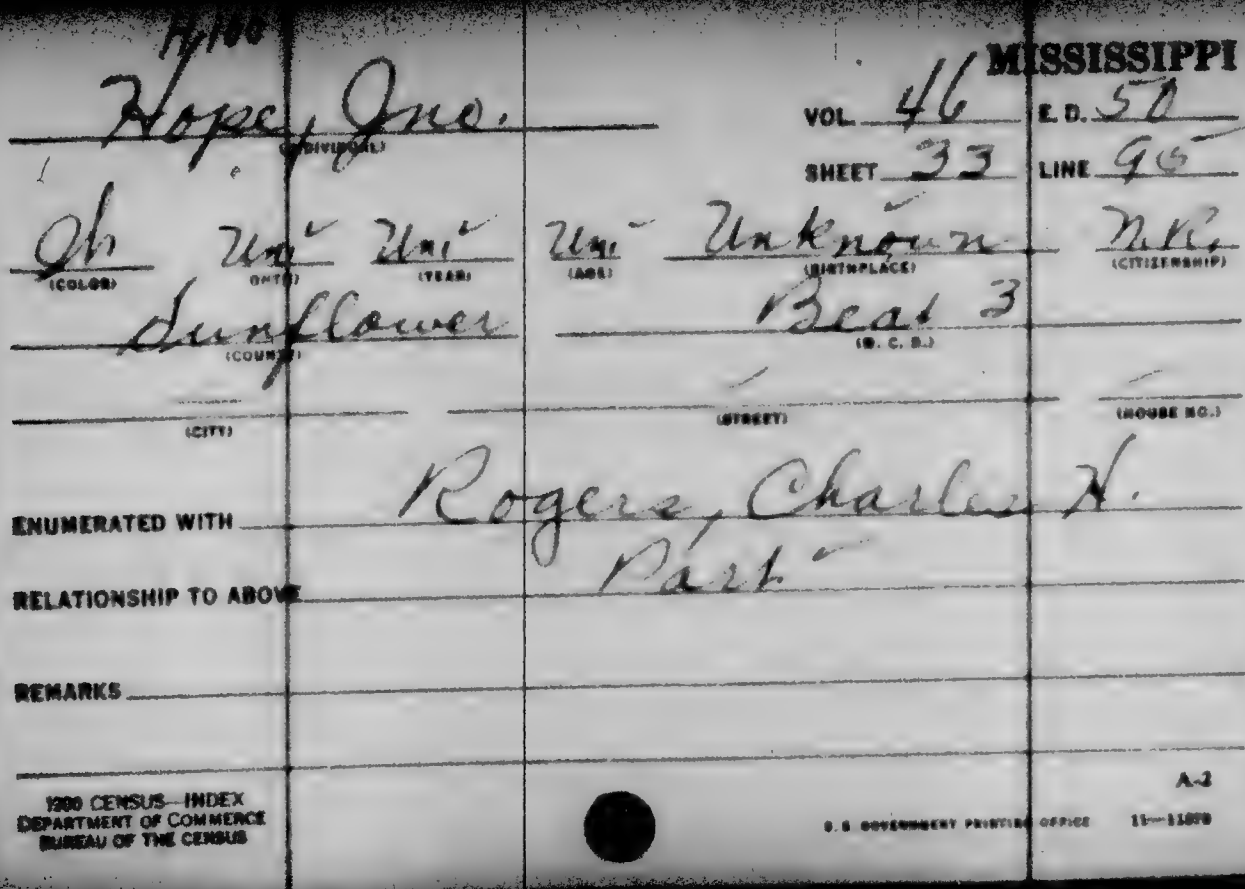 H,100
MISSISSIPPI
Hope, Jno.
(INDIVIDUAL)
VOL. 46 E. D. 50
SHEET 33 LINE 95
Ch Un. Un. Un. Unknown N.R.
(COLOR) (MONTH) (YEAR) (AGE) (BIRTHPLACE) (CITIZENSHIP)
Sunflower Beat 3
(COUNTY) (M. C. D.)
(CITY) (STREET) (HOUSE NO.)
ENUMERATED WITH Rogers, Charles H.
RELATIONSHIP TO ABOVE Part
REMARKS
1900 CENSUS—INDEX
DEPARTMENT OF COMMERCE
BUREAU OF THE CENSUS
A-2
U.S. GOVERNMENT PRINTING OFFICE